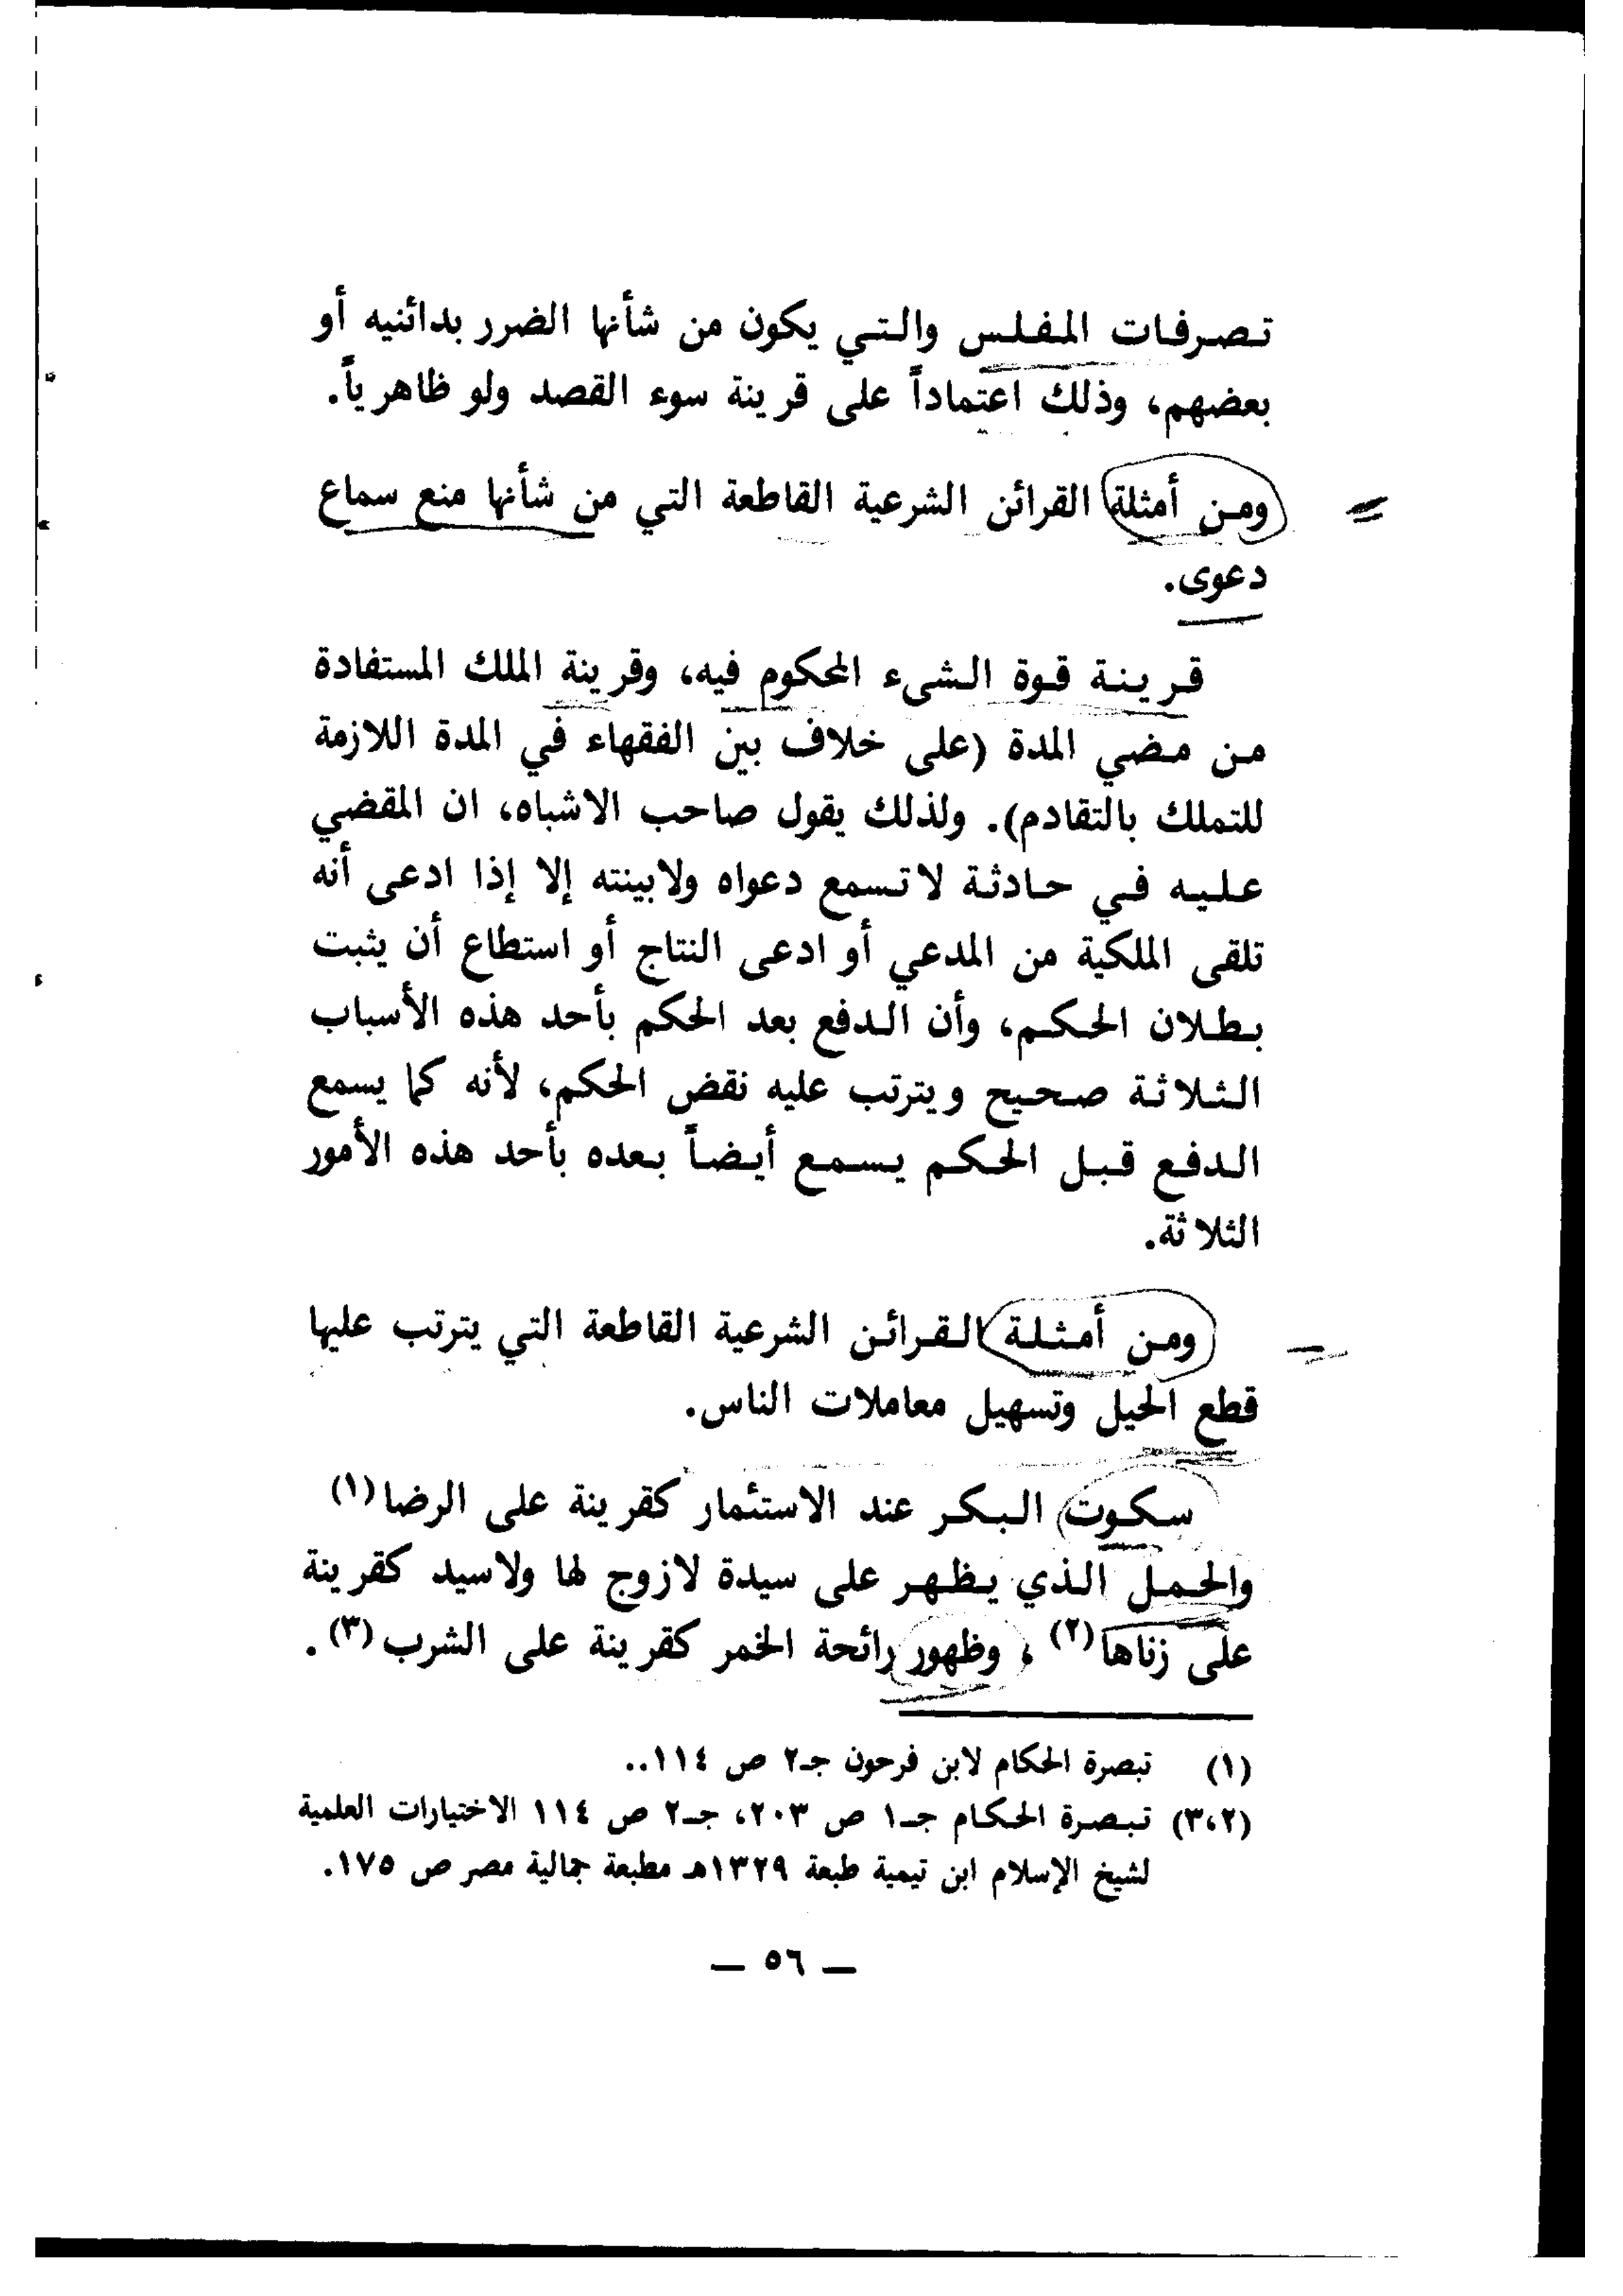 تصرفات المفلس والتي يكون من شأنها الضرر بدائنيه أو
بعضهم، وذلك اعتماداً على قرينة سوء القصد ولو ظاهرياً.
ومن أمثلة القرائن الشرعية القاطعة التي من شأنها منع سماع
دعوى.
قرينة قوة الشيء المحكوم فيه، وقرينة الملك المستفادة
من مضي المدة (على خلاف بين الفقهاء في المدة اللازمة
للتملك بالتقادم). ولذلك يقول صاحب الاشباه، ان المقضي
عليه في حادثة لا تسمع دعواه ولا بينته إلا إذا ادعى أنه
تلقى الملكية من المدعي أو ادعى النتاج أو استطاع أن يثبت
بطلان الحكم، وأن الدفع بعد الحكم بأحد هذه الأسباب
الثلاثة صحيح ويترتب عليه نقض الحكم، لأنه كما يسمع
الدفع قبل الحكم يسمع أيضاً بعده بأحد هذه الأمور
الثلاثة.
ومن أمثلة القرائن الشرعية القاطعة التي يترتب عليها
قطع الحيل وتسهيل معاملات الناس.
سكوت البكر عند الاستئمار كقرينة على الرضا (١)
والحمل الذي يظهر على سيدة لا زوج لها ولا سيد كقرينة
على زناها (٢) ، وظهور رائحة الخمر كقرينة على الشرب (٣) .
(١) تبصرة الحكام لابن فرحون جـ٢ ص ١١٤..
(٣،٢) تبصرة الحكام جـ١ ص ٢٠٣، جـ٢ ص ١١٤ الاختيارات العلمية
لشيخ الإسلام ابن تيمية طبعة ١٣٢٩هـ مطبعة جمالية مصر ص ١٧٥.
— ٥٦ —